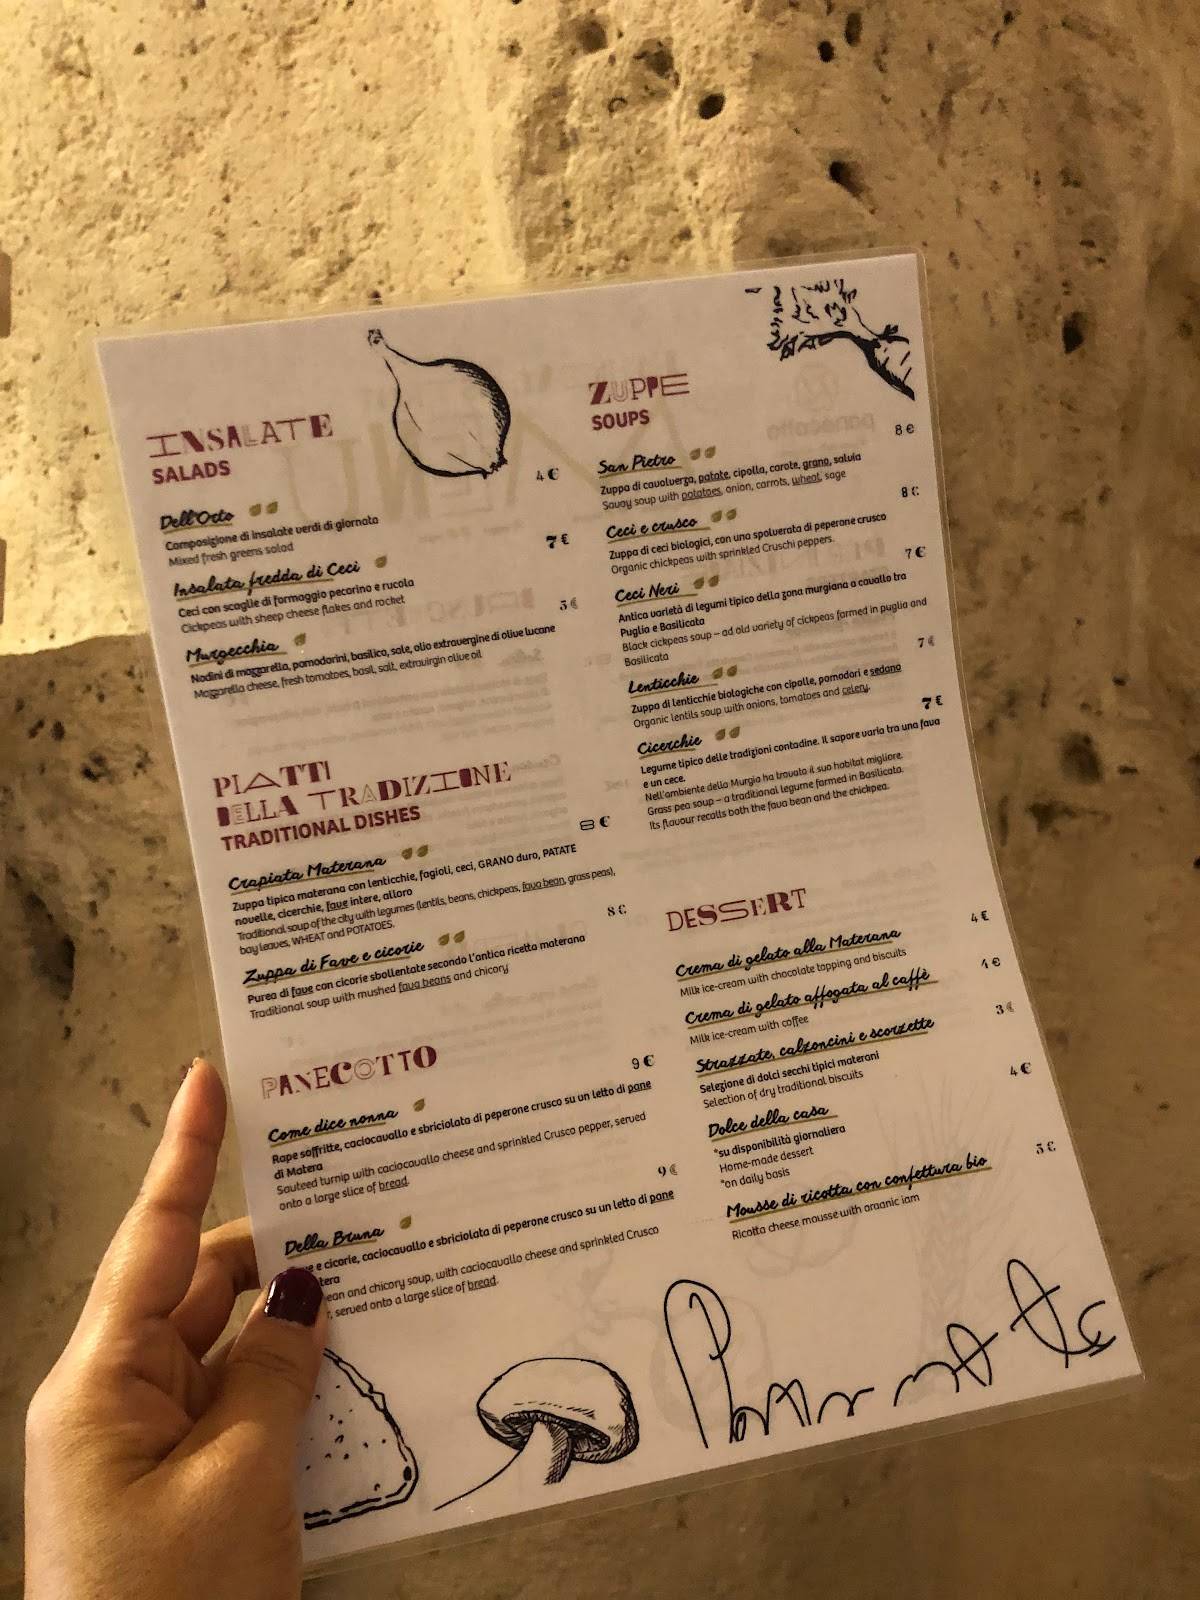 INSALATE
SALADS
4 €
Dell'Orto
Composizione di insalate verdi di giornata
Mixed fresh greens salad
7 €
Insalata fredda di Ceci
Ceci con scaglie di formaggio pecorino e rucola
Cickpeas with sheep cheese flakes and rocket
5 €
Murgecchia
Nodini di mozzarella, pomodorini, basilico, sale, olio extravergine di olive lucane
Mozzarella cheese, fresh tomatoes, basil, salt, extravirgin olive oil
PIATTI
DELLA TRADIZIONE
TRADITIONAL DISHES
8 €
Crapiata Materana
Zuppa tipica materana con lenticchie, fagioli, ceci, GRANO duro, PATATE
novelle, cicerchie, fave intere, alloro
Traditional soup of the city with legumes (lentils, beans, chickpeas, fava bean, grass peas),
bay leaves, WHEAT and POTATOES.
8 €
Zuppa di Fave e cicorie
Purea di fave con cicorie sbollentate secondo l'antica ricetta materana
Traditional soup with mushed fava beans and chicory
PANECOTTO
9 €
Come dice nonna
Rape soffritte, caciocavallo e sbriciolata di peperone crusco su un letto di pane
di Matera
Sauteed turnip with caciocavallo cheese and sprinkled Crusco pepper, served
onto a large slice of bread.
9 €
Della Bruna
e cicorie, caciocavallo e sbriciolata di peperone crusco su un letto di pane
and chicory soup, with caciocavallo cheese and sprinkled Crusco
served onto a large slice of bread.
ZUPPE
SOUPS
8 €
San Pietro
Zuppa di cavolverza, patate, cipolla, carote, grano, salvia
Savoy soup with potatoes, onion, carrots, wheat, sage
8 €
Ceci e crusco
Zuppa di ceci biologici, con una spolverata di peperone crusco
Organic chickpeas with sprinkled Cruschi peppers.
7 €
Ceci Neri
Antica varietà di legumi tipico della zona murgiana a cavallo tra
Puglia e Basilicata
Black cickpeas soup – ad old variety of cickpeas farmed in puglia and
Basilicata
7 €
Lenticchie
Zuppa di lenticchie biologiche con cipolle, pomodori e sedano
Organic lentils soup with onions, tomatoes and celery.
7 €
Cicerchie
Legume tipico delle tradizioni contadine. Il sapore varia tra una fava
e un cece.
Nell'ambiente della Murgia ha trovato il suo habitat migliore.
Grass pea soup – a traditional legume farmed in Basilicata.
Its flavour recalls both the fava bean and the chickpea.
DESSERT
4 €
Crema di gelato alla Materana
Milk ice-cream with chocolate topping and biscuits
4 €
Crema di gelato affogata al caffè
Milk ice-cream with coffee
3 €
Strazzate, calzoncini e scorzette
Selezione di dolci secchi tipici materani
Selection of dry traditional biscuits
4 €
Dolce della casa
*su disponibilità giornaliera
Home-made dessert
*on daily basis
5 €
Mousse di ricotta con confettura bio
Ricotta cheese mousse with organic jam